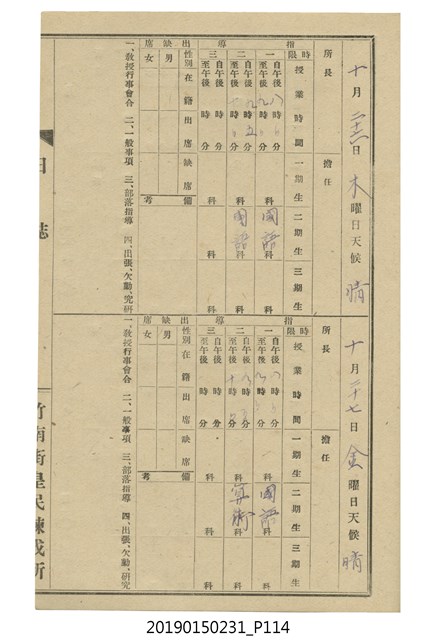 十月二十六日木曜日天候晴
所長 擔任
時限 授業時間 一期生 二期生 三期生
指導
一 自午後八時 分 至午後九時 分 科 國語科 科
二 自午後九時五分 至午後 時 分 科 國語科 科
三 自午後 時 分 至午後 時 分 科 科 科
出缺席 性別 在籍 出席 缺席 備考
男
女
一、敎授行事會合 二、一般事項 三、部落指導 四、出張、欠勤、硏究
十月二十七日金曜日天候晴
所長 擔任
時限 授業時間 一期生 二期生 三期生
指導
一 自午後八時 分 至午後九時 分 科 國語科 科
二 自午後九時 分 至午後十時 分 科 算術科 科
三 自午後 時 分 至午後 時 分 科 科 科
出缺席 性別 在籍 出席 缺席 備考
男
女
一、敎授行事會合 二、一般事項 三、部落指導 四、出張、欠勤、硏究
日誌
竹南街皇民鍊成所
20190150231_P114